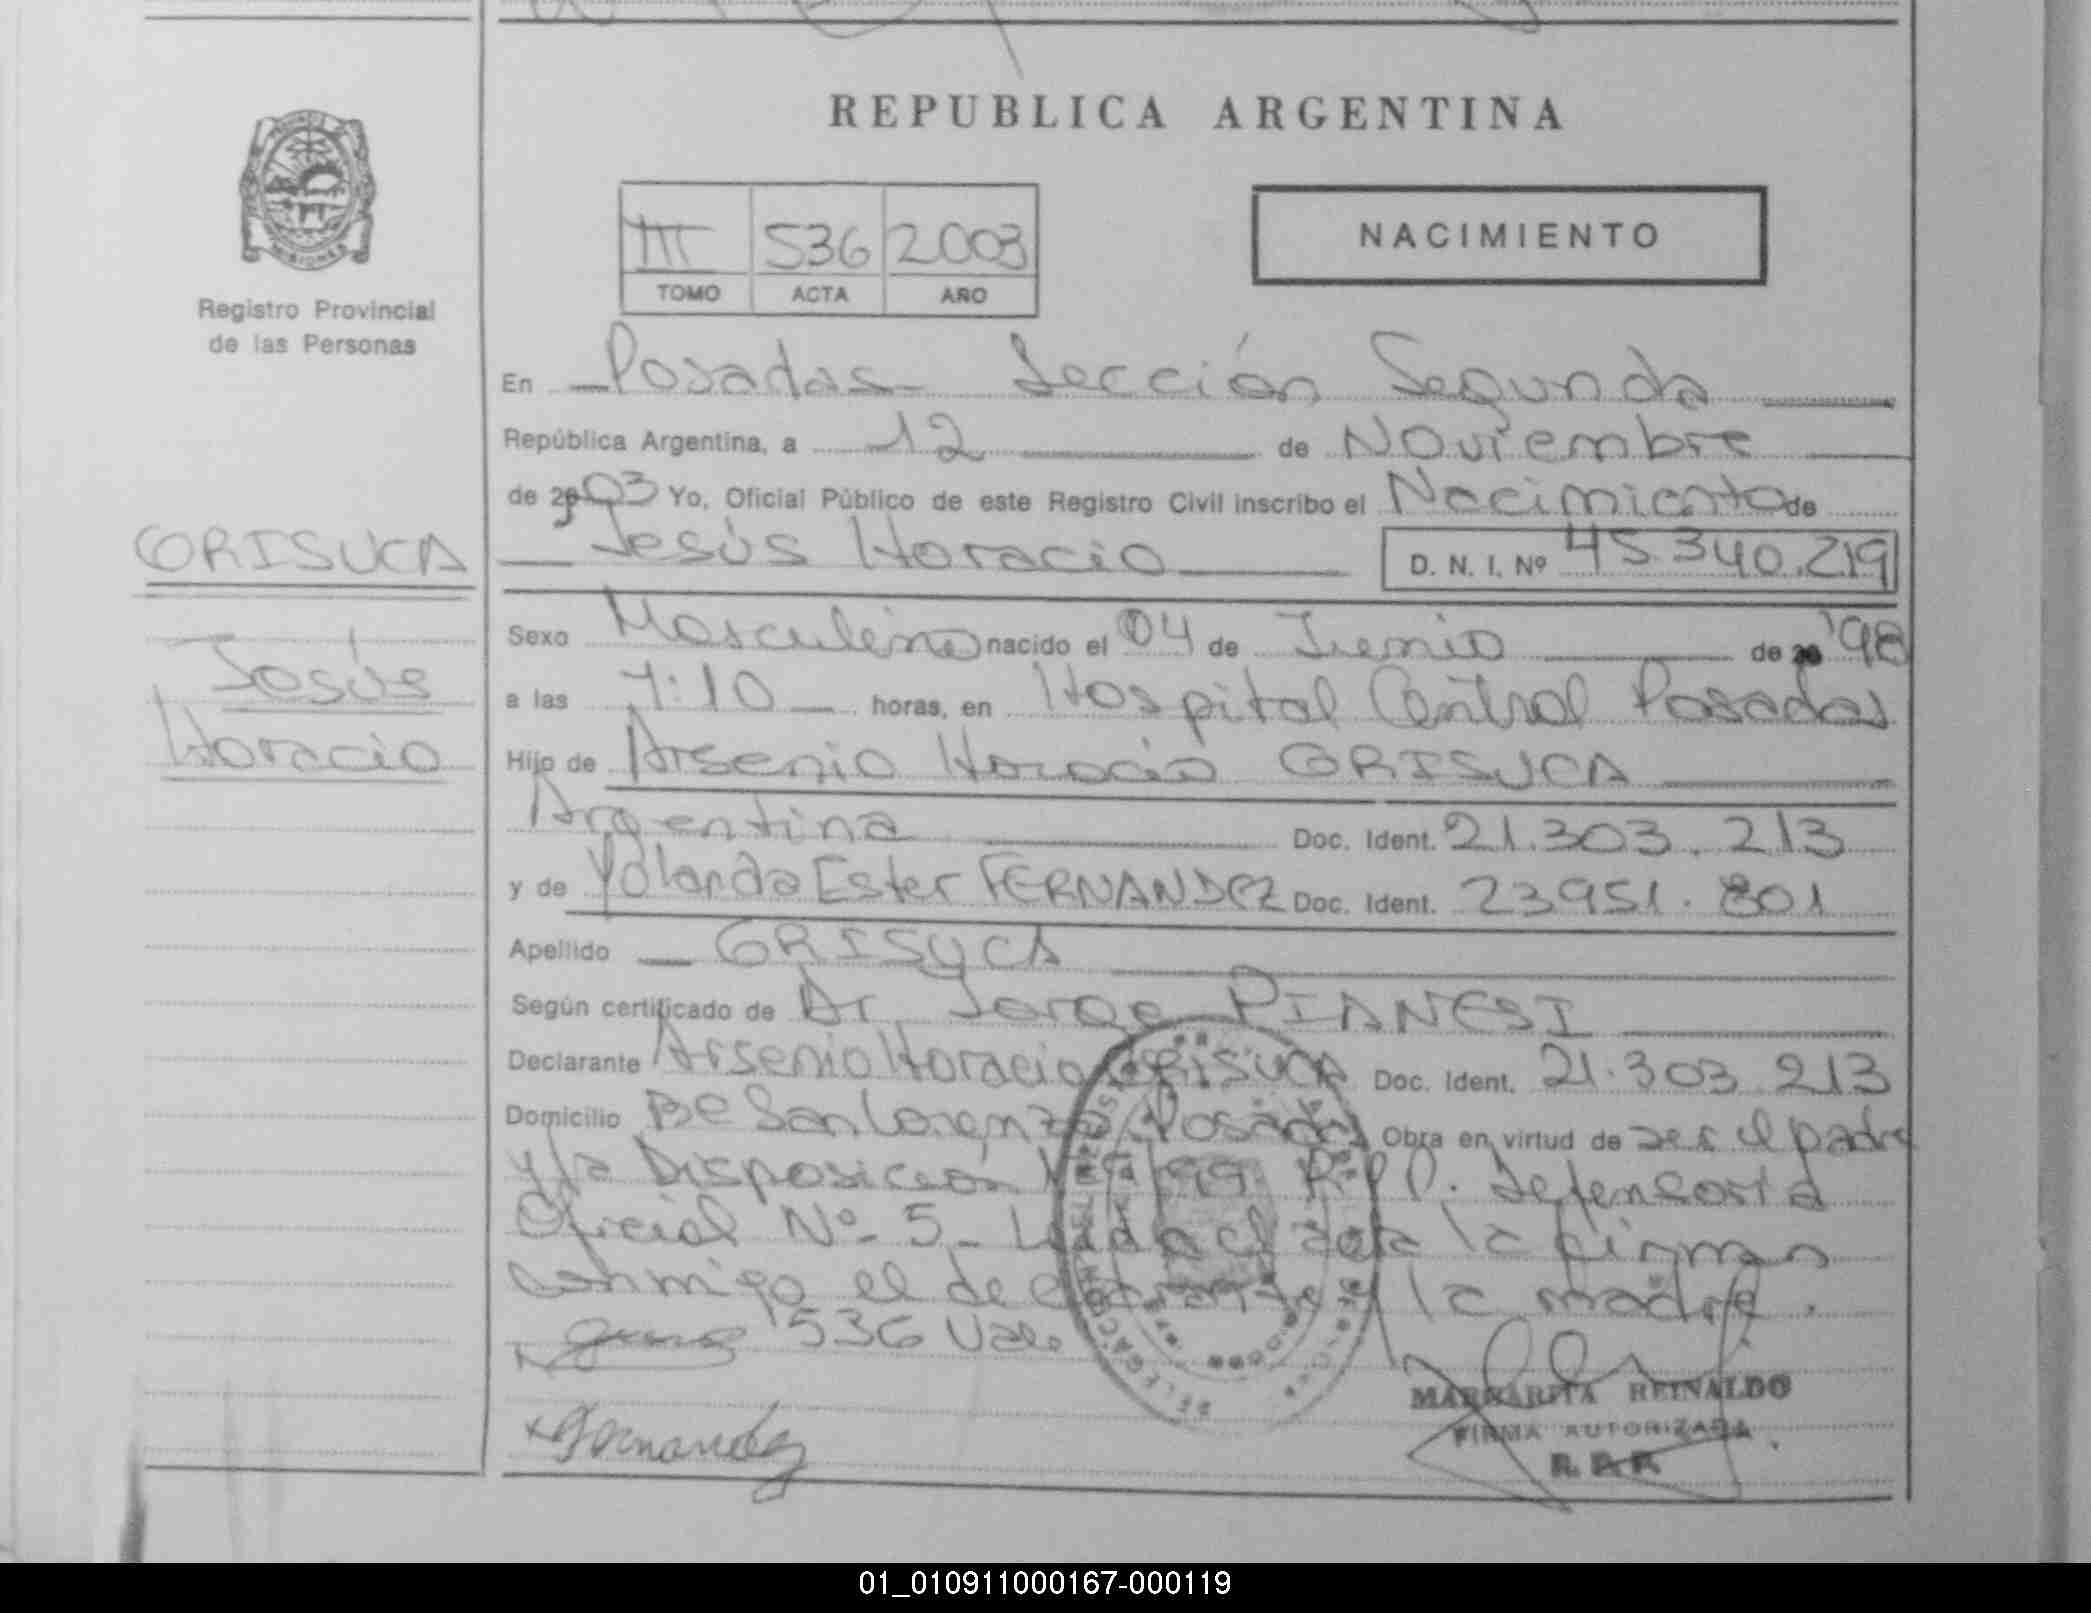 REPUBLICA ARGENTINA
MISIONES
Registro Provincial
de las Personas
III 536 2003
TOMO ACTA AÑO
NACIMIENTO
En Posadas - Sección Segunda
República Argentina, a 12 de Noviembre
de 2003 Yo, Oficial Público de este Registro Civil inscribo el Nacimiento de
GRISUCA
Jesús Horacio D. N. I. Nº 45.340.219
Sexo Masculino nacido el 04 de Junio de 98
Jesús
a las 7:10 horas, en Hospital Central Posadas
Horacio
Hijo de Arsenio Horacio GRISUCA
Argentina Doc. Ident. 21.303.213
y de Yolanda Ester FERNANDEZ Doc. Ident. 23951.801
Apellido GRISUCA
Según certificado de Dr Jorge PIANESI
Declarante Arsenio Horacio GRISUCA Doc. Ident. 21.303.213
Domicilio Bº San Lorenzo Posadas Obra en virtud de ser el padre
y la Disposición 99 R.P.P. Defensoria
Oficial Nº 5 - Leida el acta la firman
conmigo el declarante y la madre.
536 Vale
Fernandez
MARGARITA REINALDO
FIRMA AUTORIZADA
R.P.P.
01_010911000167-000119